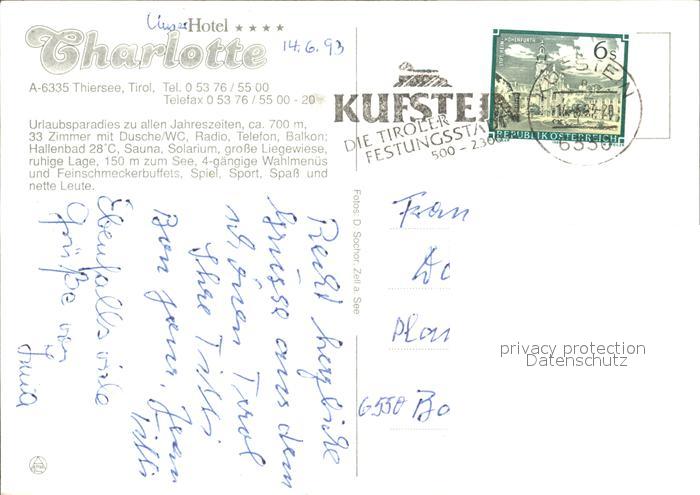 Unser Hotel ★★★★
Charlotte
14.6.93
A-6335 Thiersee, Tirol, Tel. 0 53 76 / 55 00
Telefax 0 53 76 / 55 00 - 20
Urlaubsparadies zu allen Jahreszeiten, ca. 700 m,
33 Zimmer mit Dusche/WC, Radio, Telefon, Balkon;
Hallenbad 28°C, Sauna, Solarium, große Liegewiese,
ruhige Lage, 150 m zum See, 4-gängige Wahlmenüs
und Feinschmeckerbuffets, Spiel, Sport, Spaß und
nette Leute.
Recht herzliche
Grüsse aus dem
schönen Tirol
Ihre Tilli
Bon jour, Jean
Tilli
Ebenfalls viele
Grüße von
Fotos: D. Sochor, Zell a. See
KUFSTEIN
DIE TIROLER
FESTUNGSSTADT
500 - 2300
STIFT REIN-HOHENFURTH
6s
REPUBLIK ÖSTERREICH
KUFSTEIN
6330
Frau
Dc
Plan
6550 Bo
privacy protection
Datenschutz